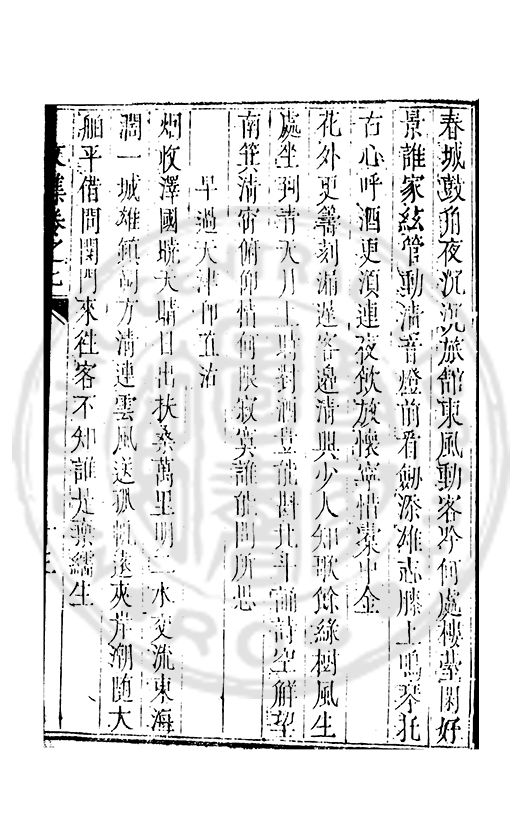 春城鼓角夜沉沉旅舘東風動客吟何處樓臺閑好
景誰家絃管動清音燈前看劍添雄志膝上鳴琴托
古心呼酒更湏連夜飲放懷寧惜橐中金
花外更籌刻漏遲客邊清興少人知歌餘綠樹風生
處坐到青天月上時對酒豈能斟北斗誦詩空解望
南箕清宵俯仰情何限寂寞誰能問所思
早過天津即直沽
烟收澤國曉天晴日出扶桑萬里明二水交流東海
濶一城雄鎮朔方清連雲風送孤帆遠夾岸潮隨大
舶平借問關門來往客不知誰是棄繻生
文集卷之七